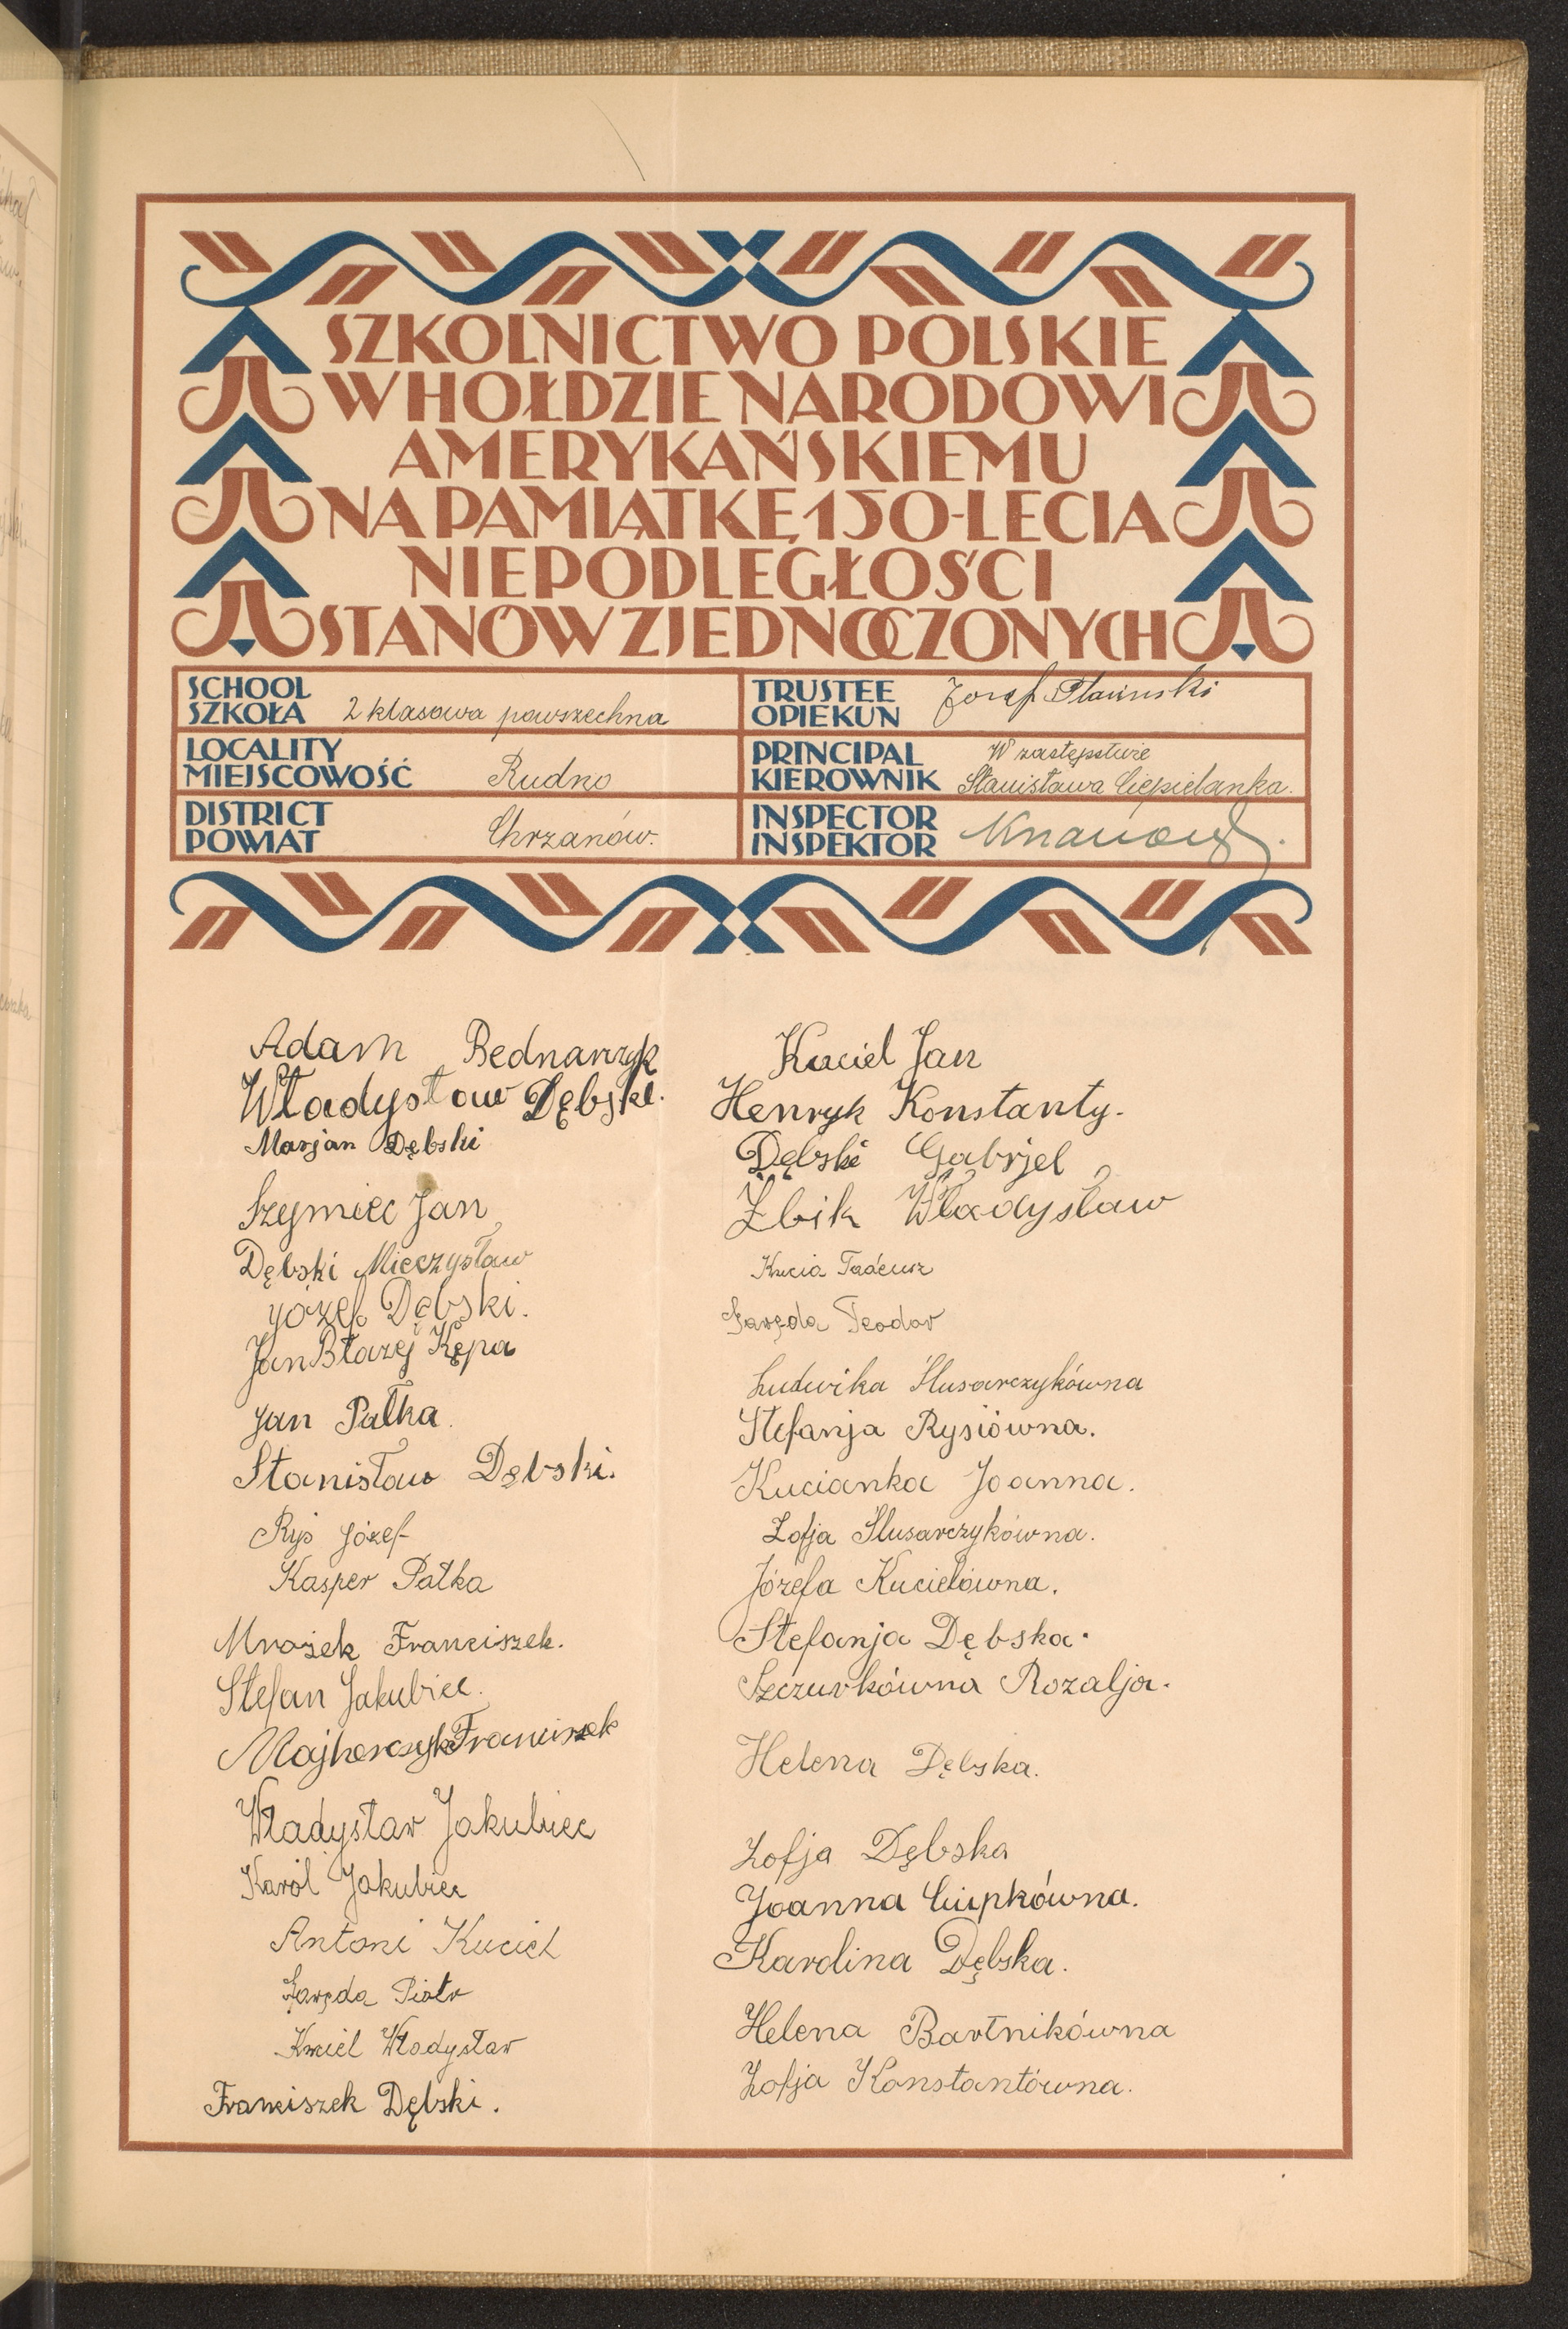 SZKOLNICTWO POLSKIE
W HOŁDZIE NARODOWI
AMERYKAŃSKIEMU
NA PAMIĄTKĘ 150-LECIA
NIEPODLEGŁOŚCI
STANÓW ZJEDNOCZONYCH
SCHOOL
SZKOŁA 2 klasowa powszechna
LOCALITY
MIEJSCOWOŚĆ Rudno
DISTRICT
POWIAT Chrzanów.
TRUSTEE
OPIEKUN Józef
PRINCIPAL W zastępstwie
KIEROWNIK Stanisława Ciepielanka.
INSPECTOR
INSPEKTOR
Adam Bednarczyk
Władysław Dębski.
Marjan Dębski
Szymiec Jan
Dębski Mieczysław
Józef Dębski.
Jan Błazej Kępa
Jan Pałka.
Stanisław Dębski.
Ryś Józef
Kasper Pałka
Mrożek Franciszek.
Stefan Jakubiec.
Majherczyk Franciszek
Władysław Jakubiec
Karol Jakubiec
Antoni Kuciel
Zaręda Piotr
Kuciel Władysław
Franciszek Dębski.
Kuciel Jan
Henryk Konstanty.
Dębski Gabrjel
Żbik Władysław
Kucia Tadeusz
Zaręda Teodor
Ludwika Ślusarczykówna
Stefanja Rysiówna.
Kucianka Joanna.
Zofja Ślusarczykówna.
Józefa Kucielówna.
Stefanja Dębska.
Szczurkówna Rozalja.
Helena Dębska.
Zofja Dębska
Joanna Ciupkówna.
Karolina Dębska.
Helena Bartnikówna
Zofja Konstantówna.